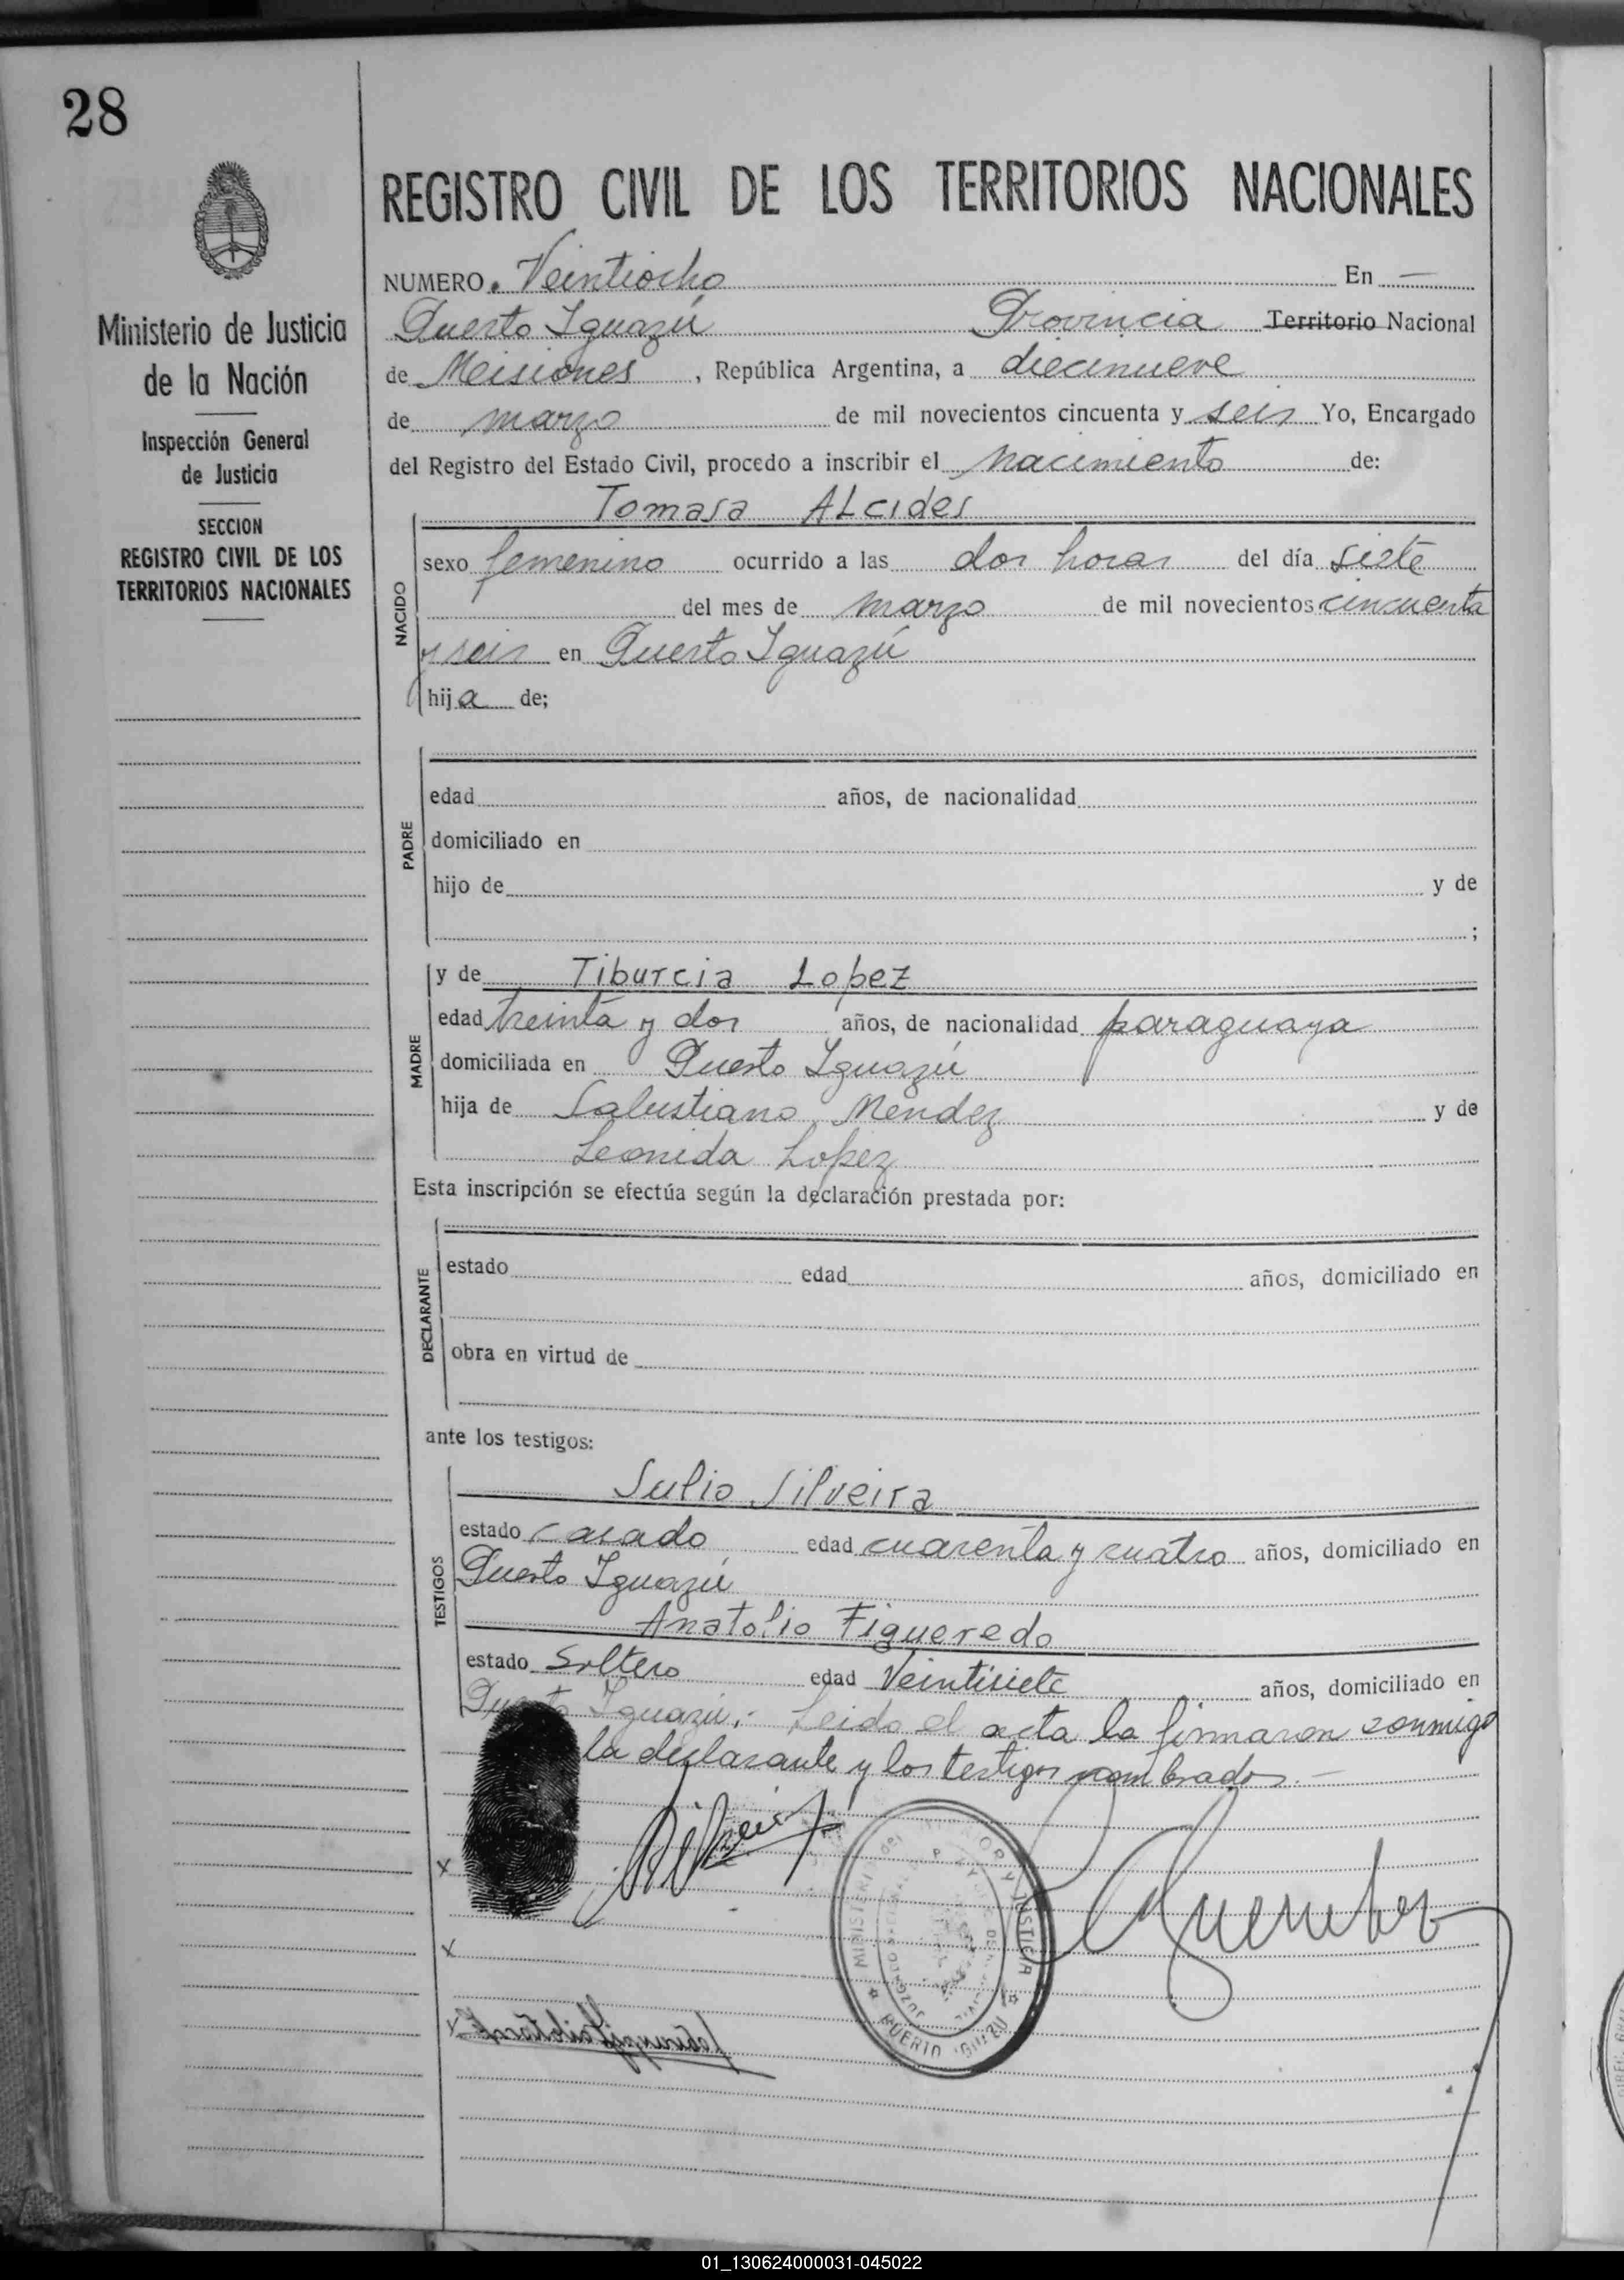 28
REGISTRO CIVIL DE LOS TERRITORIOS NACIONALES
Ministerio de Justicia
de la Nación
Inspección General
de Justicia
SECCION
REGISTRO CIVIL DE LOS
TERRITORIOS NACIONALES
NUMERO. Veintiocho En —
Puerto Iguazú Provincia Territorio Nacional
de Meisiones, República Argentina, a diecinueve
de marzo de mil novecientos cincuenta y seis Yo, Encargado
del Registro del Estado Civil, procedo a inscribir el nacimiento de:
NACIDO
Tomasa ALcides
sexo femenino ocurrido a las dos horas del día siete
del mes de marzo de mil novecientos cincuenta
y seis en Puerto Iguazú
hija de;
PADRE
edad años, de nacionalidad
domiciliado en
hijo de y de
;
MADRE
y de Tiburcia Lopez
edad treinta y dos años, de nacionalidad paraguaya
domiciliada en Puerto Iguazú
hija de Salustiano Mendez y de
Leonida Lopez
Esta inscripción se efectúa según la declaración prestada por:
DECLARANTE
estado edad años, domiciliado en
obra en virtud de
ante los testigos:
TESTIGOS
Julio Silveira
estado casado edad cuarenta y cuatro años, domiciliado en
Puerto Iguazú
Anatolio Figueredo
estado Soltero edad Veintisiete años, domiciliado en
Puerto Iguazú;- Leido el acta la firmaron conmigo
la declarante y los testigos nombrados.—
x
x
x
MINISTERIO del INTERIOR Y JUSTICIA
PUERTO IGUAZU
01_130624000031-045022